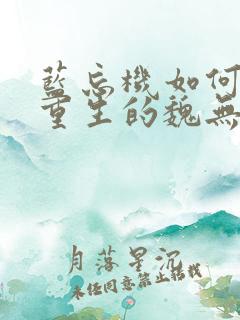 藍忘機如何
重生的魏無
月落星沉
未經同意禁止轉載